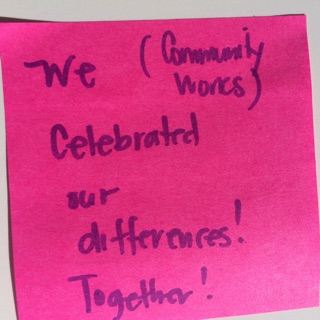 We (Community
Works)
Celebrated
our
differences!
Together!